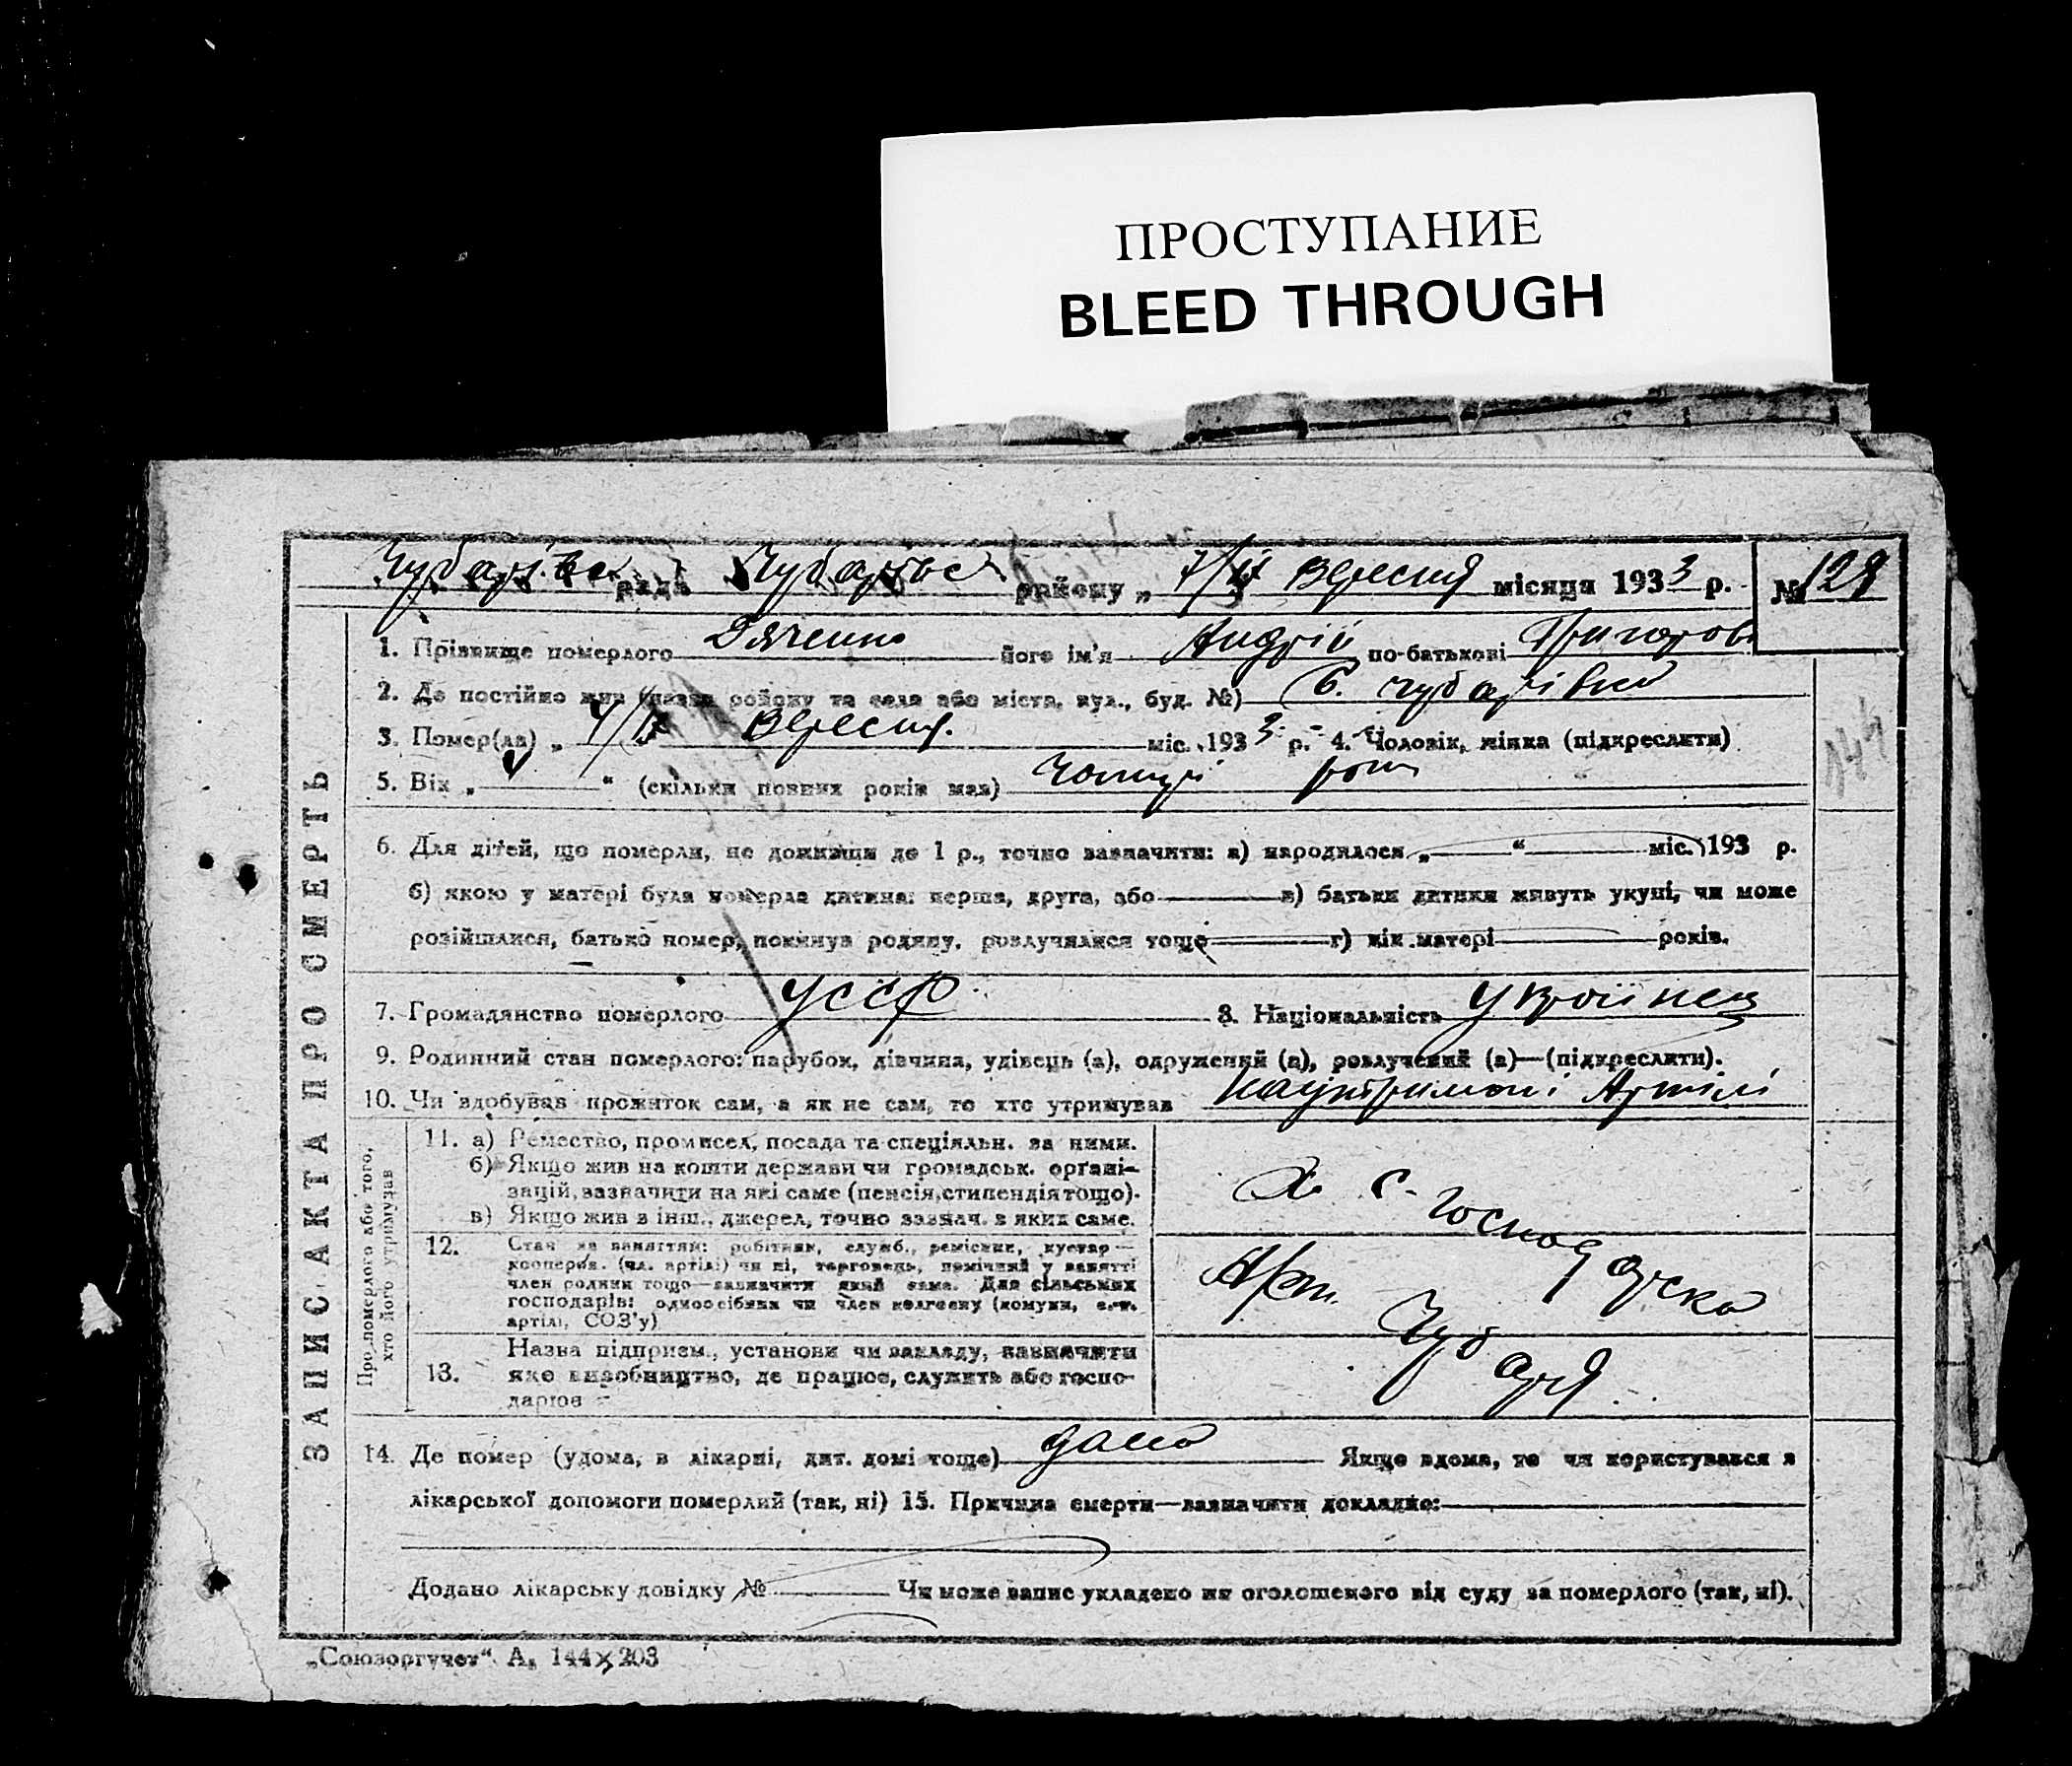 ПРОСТУПАНИЕ
BLEED THROUGH
Чубарівська рада Чубарівськ району „ 7/IX Вересня місяця 1933 р. № 128
ЗАПИС АКТА ПРО СМЕРТЬ
1. Прізвище померлого Дяченко його ім'я Андрій по-батькові Григоров
2. Де постійно жив (назва району та села або міста, вул., буд. №) С. Чубарівка
3. Помер(ла) „ 4/IX Вересня. міс. 1933 р. 4. Чоловік, жінка (підкреслити)
5. Вік „ “ (скільки повних років мав) Чотирі роки
144
6. Для дітей, що померли, не доживши до 1 р., точно зазначити: а) народилося „ “ міс. 193 р.
б) якою у матері була померла дитина: перша, друга, або в) батьки дитини живуть укупі, чи може
розійшлися, батько помер, покинув родину, розлучилися тощо г) вік матері років.
7. Громадянство померлого УССР 8. Національність Українец
9. Родинний стан померлого: парубок, дівчина, удівець (а), одружений (а), розлучений (а)—(підкреслити).
10. Чи здобував прожиток сам, а як не сам, то хто утримував на утриманні Артілі
Про померлого або того,
хто його утримував
11. а) Ремество, промисел, посада та спеціяльн. за ними.
б) Якщо жив на кошти держави чи громадськ. органі-
зацій, зазначити на які саме (пенсія, стипендія тощо).
в) Якщо жив з інш., джерел, точно зазнач. з яких саме.
С. господарска
12. Стан за заняттям: робітник, служб., ремісник, кустар—
кооперов. (чл. артілі) чи ні, торговець, помічний у занятті
член родини тощо—зазначити який саме. Для сільських
господарів: одноосібник чи член колгоспу (комуни, с.-г.
артілі, СОЗ'у)
Арт.
13. Назва підприєм., установи чи закладу, зазначити
яке виробництво, де працює, служить або госпо-
дарює
Чубаря
14. Де помер (удома, в лікарні, дит. домі тощо) дома Якщо вдома, то чи користувався з
лікарської допомоги померлий (так, ні) 15. Причина смерти—зазначити докладно:
Додано лікарську довідку № Чи може запис укладено як оголошеного від суду за померлого (так, ні).
„Союзоргучет“ А. 144×203